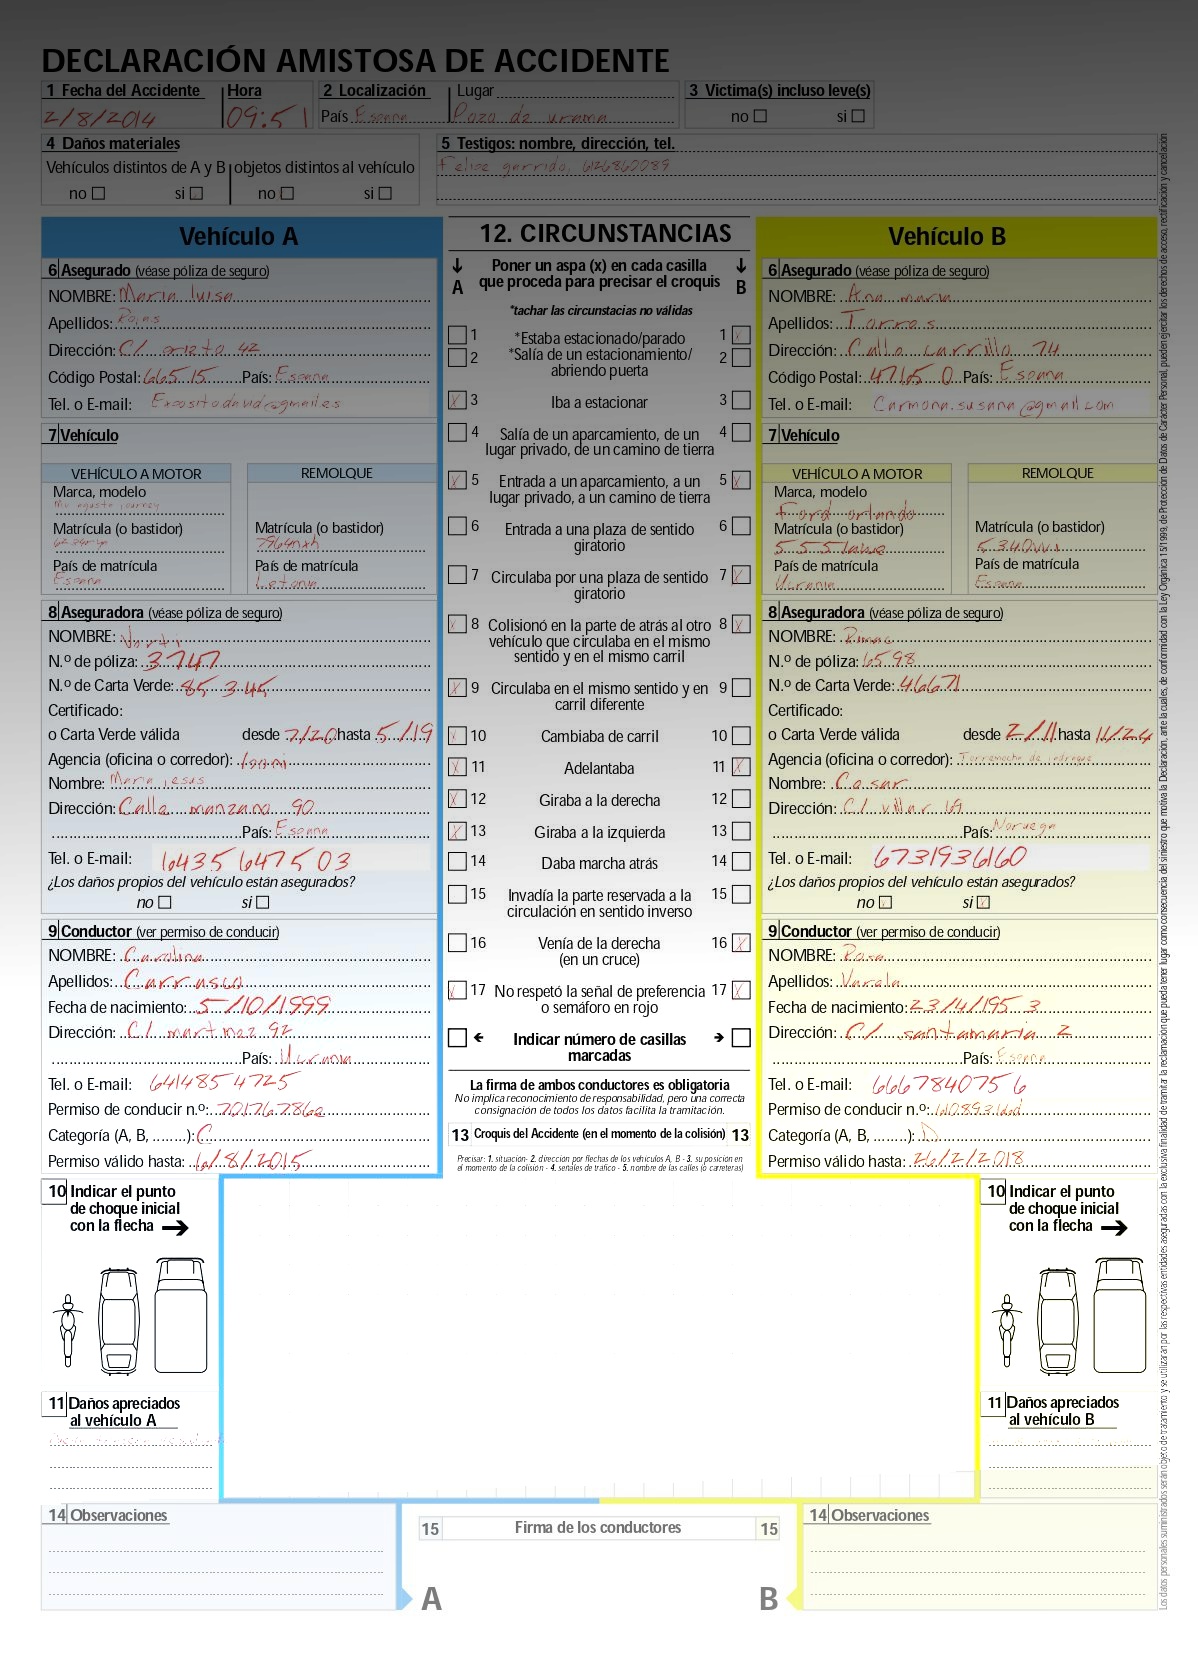 DECLARACIÓN AMISTOSA DE ACCIDENTE
1 Fecha del Accidente Hora 2 Localización Lugar 3 Victima(s) incluso leve(s)
2/8/2014 09:51 País Espana Pozo de urama no si
4 Daños materiales 5 Testigos: nombre, dirección, tel.
Vehículos distintos de A y B objetos distintos al vehículo Felipe garrido, 626860089
no si no si
Vehículo A
6 Asegurado (véase póliza de seguro)
NOMBRE: Maria luisa
Apellidos: Rojas
Dirección: C/ prieto 42
Código Postal: 66515 País: Espana
Tel. o E-mail: Expositodavid@gmail.es
7 Vehículo
VEHÍCULO A MOTOR REMOLQUE
Marca, modelo
Mv agusta journey
Matrícula (o bastidor) Matrícula (o bastidor)
7964mxh
País de matrícula País de matrícula
Espana Letonia
8 Aseguradora (véase póliza de seguro)
NOMBRE: Verti
N.º de póliza: 3747
N.º de Carta Verde: 85345
Certificado:
o Carta Verde válida desde 7/20 hasta 5/19
Agencia (oficina o corredor):
Nombre: Maria jesus
Dirección: Calle manzano 90
País: Espana
Tel. o E-mail: 6435647503
¿Los daños propios del vehículo están asegurados?
no si
9 Conductor (ver permiso de conducir)
NOMBRE: Carolina
Apellidos: Carrasco
Fecha de nacimiento: 5/10/1999
Dirección: C/ martinez 92
País: Ucrania
Tel. o E-mail: 6414854725
Permiso de conducir n.º: 70176786a
Categoría (A, B, ........): C
Permiso válido hasta: 6/8/2015
10 Indicar el punto
de choque inicial
con la flecha
11 Daños apreciados
al vehículo A
14 Observaciones
12. CIRCUNSTANCIAS
A Poner un aspa (x) en cada casilla B
que proceda para precisar el croquis
*tachar las circunstacias no válidas
1 *Estaba estacionado/parado 1 x
2 *Salía de un estacionamiento/ 2
abriendo puerta
x 3 Iba a estacionar 3
4 Salía de un aparcamiento, de un 4
lugar privado, de un camino de tierra
x 5 Entrada a un aparcamiento, a un 5 x
lugar privado, a un camino de tierra
6 Entrada a una plaza de sentido 6
giratorio
7 Circulaba por una plaza de sentido 7 x
giratorio
x 8 Colisionó en la parte de atrás al otro 8 x
vehículo que circulaba en el mismo
sentido y en el mismo carril
x 9 Circulaba en el mismo sentido y en 9
carril diferente
x 10 Cambiaba de carril 10
x 11 Adelantaba 11 x
x 12 Giraba a la derecha 12
x 13 Giraba a la izquierda 13
14 Daba marcha atrás 14
15 Invadía la parte reservada a la 15
circulación en sentido inverso
16 Venía de la derecha 16 x
(en un cruce)
x 17 No respetó la señal de preferencia 17 x
o semáforo en rojo
Indicar número de casillas
marcadas
La firma de ambos conductores es obligatoria
No implica reconocimiento de responsabilidad, pero una correcta
consignación de todos los datos facilita la tramitación.
13 Croquis del Accidente (en el momento de la colisión) 13
Precisar: 1. situación- 2. dirección por flechas de los vehículos A, B - 3. su posición en
el momento de la colisión - 4. señales de tráfico - 5. nombre de las calles (o carreteras)
15 Firma de los conductores 15
A B
Vehículo B
6 Asegurado (véase póliza de seguro)
NOMBRE: Ana maria
Apellidos: Torres
Dirección: Calle carrillo 74
Código Postal: 47165 0 País: Espana
Tel. o E-mail: Carmona.susana@gmail.com
7 Vehículo
VEHÍCULO A MOTOR REMOLQUE
Marca, modelo
Ford orlando
Matrícula (o bastidor) Matrícula (o bastidor)
País de matrícula País de matrícula
Ucrania Espana
8 Aseguradora (véase póliza de seguro)
NOMBRE: Rimac
N.º de póliza: 6598
N.º de Carta Verde: 46671
Certificado:
o Carta Verde válida desde 2/11 hasta 11/24
Agencia (oficina o corredor): Torremocha de jadraque
Nombre: Cesar
Dirección: C/ villar 69
País: Noruega
Tel. o E-mail: 6731936160
¿Los daños propios del vehículo están asegurados?
no si x
9 Conductor (ver permiso de conducir)
NOMBRE: Rosa
Apellidos: Varela
Fecha de nacimiento: 23/4/1953
Dirección: C/ santamaria 2
País: Espana
Tel. o E-mail: 6667840756
Permiso de conducir n.º:
Categoría (A, B, ........): D
Permiso válido hasta: 26/2/2018
10 Indicar el punto
de choque inicial
con la flecha
11 Daños apreciados
al vehículo B
14 Observaciones
Los datos personales suministrados serán objeto de tratamiento y se utilizaran por las respectivas entidades aseguradas con la exclusiva finalidad de tramitar la reclamación que pueda tener lugar como consecuencia del siniestro que motiva la Declaración, ante la cuales, de conformidad con la Ley Orgánica 15/1999, de Protección de Datos de Carácter Personal, pueden ejercitar los derechos de acceso, rectificación y cancelación